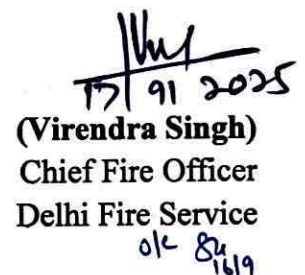 17/9/2025
(Virendra Singh)
Chief Fire Officer
Delhi Fire Service
o/c
16/9